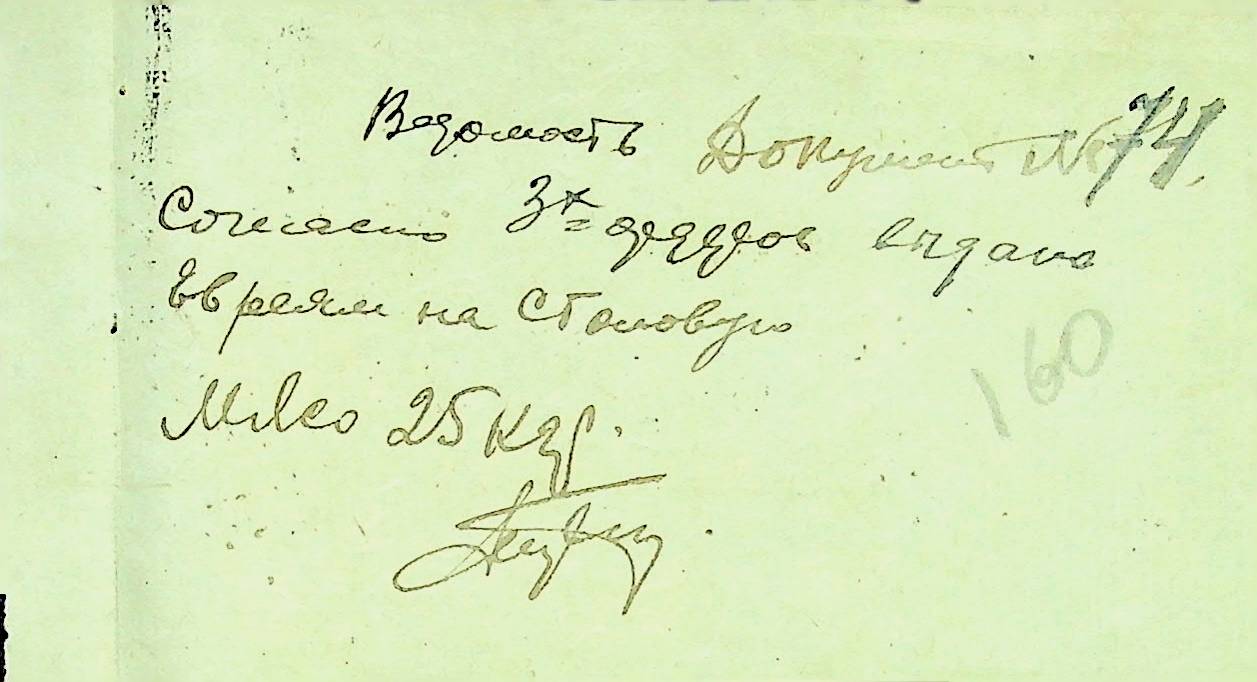 Ведомость Документ № 74.
Согласно 3х ордеров выдано
Евреям на Столовую
160
Мясо 25 кгр.